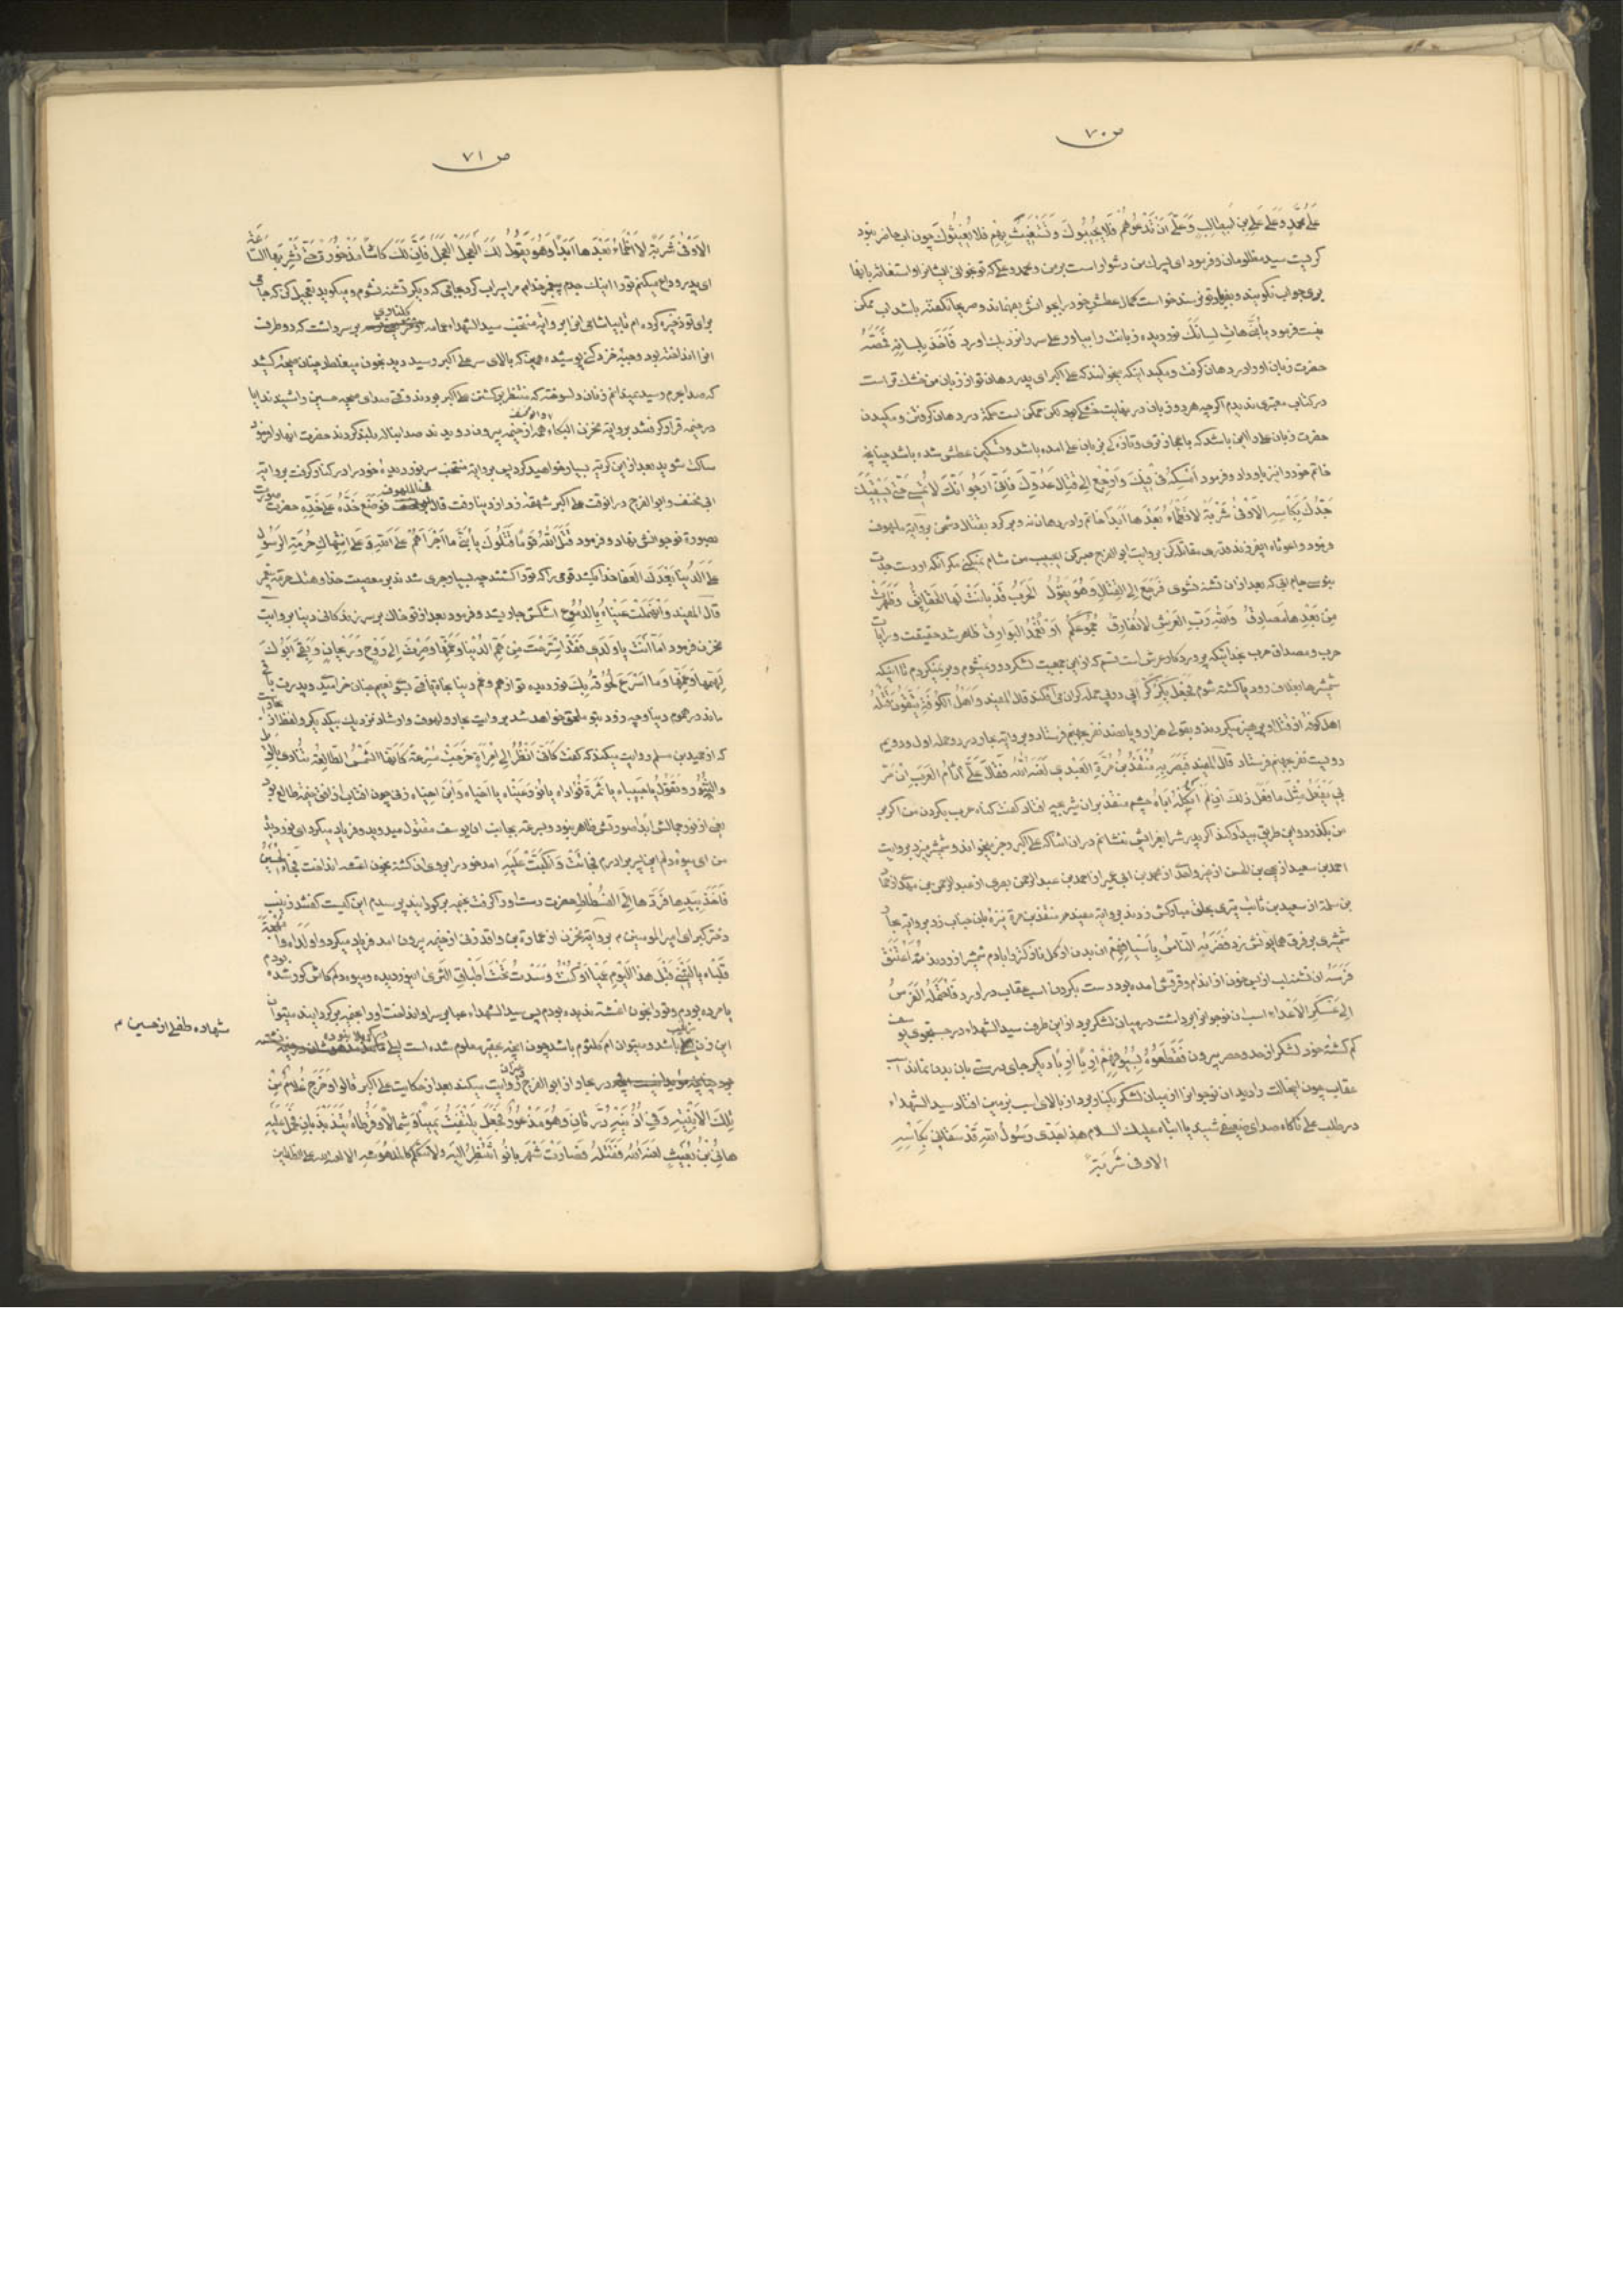 ص ٧٠
عَلی مُحَمَّدٍ وَعَلی عَلِی بنِ اَبیطالِبٍ وَعَلَیَّ اَنْ تَدْعُوَهُمْ فَلا یُجیبُوكَ وَتَسْتَغیثُ بِهِمْ فَلا یُغیثُوكَ چون اب حاضر نبود
کریست سید مظلومان و فرمود ای پسرك من دشوار است بر من و محمد و علی که تو بخوانی ایشانرا و استغاثه بانها
بری جواب نکویند و بفریاد تو نرسند خواست کمال عطش خود را بجوانش بفهماند و صریحا نکفته باشد اب ممکن
نیست فرمود یا بُنَیَّ هاتِ لِسانَكَ نور دیده زبانت را بیاور علی سر را نزدیك اورد فَاَخَذَ بِلِسانِهِ فَمَصَّهُ
حضرت زبان او را در دهان کرفت و مکید اینکه میخوانند که علی اکبر ای پدر دهان تو از زبان من خشك تر است
در کتاب معتبری ندیدم اکرچه هر دو زبان در نهایت خشکی بود لکن ممکن است نکتهٔ در دهان کرفتن و مکیدن
حضرت زبان علی را این باشد که باعجاز تری و تازه کی بزبان علی امده باشد و تسکین عطش شده باشد چنانچه
خاتم خود را نیز باو داد و فرمود اَمْسِکْهُ فی فیكَ وَارْجِعْ اِلی قِتالِ عَدُوِّكَ فَاِنّی اَرْجُوا اَنَّكَ لا تُمْسی حَتّی یَسْقِیَكَ
جَدُّكَ بِکَاْسِهِ الْاَوْفی شَرْبَةً لا تَظْمَاءُ بَعْدَها اَبَدًا خاتم را در دهان نه و برکرد بقتال دشمن بروایة ملهوف
فرمود واغوثاه ایفرزند قدری مقاتله کن بروایت ابو الفرج صبر کن ایحبیب من شام نمیکنی مکر انکه از دست جدت
بنوشی جام ابی که بعد از ان تشنه نشوی فَرَجَعَ اِلَی الْقِتالِ وَهُوَ یَقُولُ اَلْحَرْبُ قَدْ بانَتْ لَهَا الْحَقائِقُ وَظَهَرَتْ
مِنْ بَعْدِها مَصادِقُ وَاللهِ رَبِّ الْعَرْشِ لا نُفارِقُ جُمُوعَکُمْ اَوْ تُغْمَدُ الْبَوارِقُ ظاهر شد حقیقت و رایات
حرب و مصداق حرب بخدائیکه پروردکار عرش است قسم که از این جمعیت لشکر دور نمیشوم و بر نمیکردم تا اینکه
شمشیرها بغلاف رود یا کشته شوم فَجَعَلَ یَکُرُّ کَرَّ ابی در پی حمله کران می افکند قال المفید وَاَهْلُ الْکُوفَةِ یَتَّقُونَ قَتْلَهُ
اهل کوفه از قتل او پرهیز میکردند و بقولی هزار و پانصد نفر بجهنم فرستاد و بروایة بحار در دو حمله اول و دویم
دویست نفر بجهنم فرستاد قال المفید فَبَصَرَ بِهِ مُنْقِذُ بْنُ مُرَّةِ الْعَبْدِی لَعَنَهُ اللهُ فَقالَ عَلَیَّ اٰثامُ الْعَرَبِ اِنْ مَرَّ
بی یَفْعَلُ مِثْلَ ما فَعَلَ ذلِكَ اِنْ لَمْ اُثْکِلْهُ اَباهُ چشم منقذ بران شیر بچه افتاد کفت کناه عرب بکردن من اکر بر
من بکذرد و این طریق بیداد کند اکر پدرش را بعزایش ننشانم در ان اثنا که علی اکبر رجز میخواند و شمشیر میزد بروایت
احمد بن سعید از یحیی بن الحسن از غیر واحد از محمد بن ابی عمیر از احمد بن عبد الرحمن بصری از عبد الرحمن بن مهدی از حماد
بن سلمه از سعید بن ثابت تیری بحلق مبارکش زدند بروایة مفید مر منقذ بن مرة نیزهٔ بان جناب زد بروایة بحار
شمشیری بر فرق همایونش زد فَضَرَبَهُ النّاسُ بِاَسْیافِهِمْ ان بدن از کل نازکتر را بادم شمشیر ازردند ثُمَّ اعْتَنَقَ
فَرَسَهُ ان تشنه لب از بس خون از اندام و فرقش امده بود دست بکردن اسب عقاب در اورد فَاحْتَمَلَهُ الْفَرَسُ
اِلی عَسْکَرِ الْاَعْداءِ اسب ان نوجوانرا برداشت در میان لشکر برد از این طرف سید الشهداء در جستجوی یوسف
کم کشته خود لشکر از حد و حصر بیرون فَقَطَّعُوهُ بِسُیُوفِهِمْ اِرْبًا اِرْبًا دیکر جای درستی بان بدن نماند
عقاب چون انحالت را دید ان نوجوانرا از میان لشکر بکنار برد از بالای اسب بزمین افتاد سید الشهداء
در طلب علی ناکاه صدای ضعیفی شنید یا ابتاه علیك السلام هذا جَدّی رَسُولُ اللهِ قَدْ سَقانی بِکَاْسِهِ
الاوفی شَرْبَةً
ص ٧١
الْاَوْفی شَرْبَةً لا اَظْمَاءُ بَعْدَها اَبَدًا وَهُوَ یَقُولُ لَكَ الْعَجَلَ الْعَجَلَ فَاِنَّ لَكَ کَاْسًا مَذْخُورَةً حَتّی تَشْرِبَهَا السّاعَةَ
ای پدر وداع میکنم تو را اینك جدم پیغمبر خدا مرا سیراب کرد بجامی که دیکر تشنه نشوم و میکوید تعجیل کن که جامی
برای تو ذخیره کرده ام تا بیاشامی انرا بروایة منتخب سید الشهداء عمامه بر سر داشت که دو طرف
انرا انداخته بود و جبهٔ خز دکنی پوشیده همینکه بالای سر علی اکبر رسید دید بخون میغلطد چنان صیحه کشید
که صدا بحرم رسید نمیدانم زنان دلسوخته که منتظر برکشتن علی اکبر بودند وقتی صدای صیحه حسین را شنیدند ایا
در خیمه قرار کرفتند بروایة مخزن البکاء همه از خیمه بیرون دویدند صدا بناله بلند کردند حضرت انها را فرمود
ساکت شوید بعد از این کریه بسیار خواهید کرد پس بروایة منتخب سر نور دیدهٔ خود را در کنار کرفت بروایة
ابی مخنف و ابو الفرج در انوقت علی اکبر شهقهٔ زد از دنیا رفت قال فَوَضَعَ خَدَّهُ عَلی خَدِّهِ حضرت صورت
بصورة نوجوانش نهاد و فرمود قَتَلَ اللهُ قَوْمًا قَتَلُوكَ یا بُنَیَّ ما اَجْرَاَهُمْ عَلَی اللهِ وَعَلی اِنْتِهاكِ حُرْمَةِ الرَّسُولِ
عَلَی الدُّنْیا بَعْدَكَ الْعَفا خدا بکشد قومی را که تو را کشتند چه بسیار جری شدند بر معصیت خدا و هتك حرمة پیغمبر
قال المفید وَانْهَمَلَتْ عَیْناهُ بِالدُّمُوعِ اشکش جاریشد و فرمود بعد از تو خاك بر سر زندکانی دنیا بروایت
مخزن فرمود اَمّا اَنْتَ یا وَلَدی فَقَدْ اسْتَرَحْتَ مِنْ هَمِّ الدُّنْیا وَغَمِّها وَصِرْتَ اِلی رَوْحٍ وَرَیْحانٍ وَبَقِیَ اَبُوكَ
لِهَمِّها وَغَمِّها وَما اَسْرَعَ لُحُوقَهُ بِكَ نور دیده تو از هم و غم دنیا نجاة یافتی بسوی نعیم جنان خرامیدی و پدرت باقی
ماند در هموم دنیا و چه زود بتو ملحق خواهد شد بروایت بحار و ملهوف و ارشاد نزدیك بیکدیکر و لفظ از بحار است
که از حمید بن مسلم روایت میکند که کفت کَاَنّی اَنْظُرُ اِلی اِمْرَاَةٍ خَرَجَتْ مُسْرِعَةً کَاَنَّهَا الشَّمْسُ الطّالِعَةُ تُنادی بِالْوَیْلِ
وَالثُّبُورِ وَتَقُولُ یا حَبیباهُ یا ثَمَرَةَ فُؤاداهُ یا نُورَ عَیْناهُ یا اُخَیّاهُ وَابْنَ اُخَیّاهُ زنی چون افتاب از افق خیمه طالع بود
یعنی از نور جمالش ابدا صورتش ظاهر نبود و بسرعة بجانب ان یوسف مقتول میدوید و فریاد میکرد ای نور دیدهٔ
من ای میوه دلم ای پسر برادرم فَجائَتْ وَانْکَبَّتْ عَلَیْهِ امد خود را بر روی ان کشته بخون اغشته انداخت فَجاءَ الْحُسَیْنُ
فَاَخَذَ بِیَدِها فَرَدَّها اِلَی الْفُسْطاطِ حضرت دست او را کرفت بخیمه برکردانید پرسیدم این کیست کفتند زینب
دختر کبرای امیر المومنین م بروایة مخزن از عمارة بن واقد زنی از خیمه بیرون امد فریاد میکرد وا وَلَداهُ وا مُهْجَةَ
قَلْباهُ یا لَیْتَنی قَبْلَ هذَا الْیَوْمِ عَمْیاءَ کُنْتُ وَ وُسِّدْتُ تَحْتَ اَطْباقِ الثَّری اینور دیده و میوه دلم کاش کور شده بودم
یا مرده بودم و تو را بخون اغشته ندیده بودم پس سید الشهداء عبا بر سر او انداخت او را بخیمه برکردانید میتوان
این زن زینب باشد و میتوان ام کلثوم باشد چون انچه بحقیر معلوم شده است لیلی
در بحار از ابو الفرج روایت میکند بعد از حکایت علی اکبر قالوا وَخَرَجَ غُلامٌ مِنْ
تِلْكَ الْاَبْنِیَةِ وَفی اُذُنَیْهِ دُرَّتانِ وَهُوَ مَذْعُورٌ فَجَعَلَ یَلْتَفِتُ یَمینًا وَشِمالًا وَقُرْطاهُ یَتَذَبْذَبانِ فَحَمَلَ عَلَیْهِ
هانِیُ بْنُ بُعَیْثٍ لَعَنَهُ اللهُ فَقَتَلَهُ فَصارَتْ شَهْرَبانُو تَنْظُرُ اِلَیْهِ وَلا تَتَکَلَّمُ کَالْمَدْهُوشَةِ الا لعنة الله علی الظالمین
شهادة طفلی از حسین م